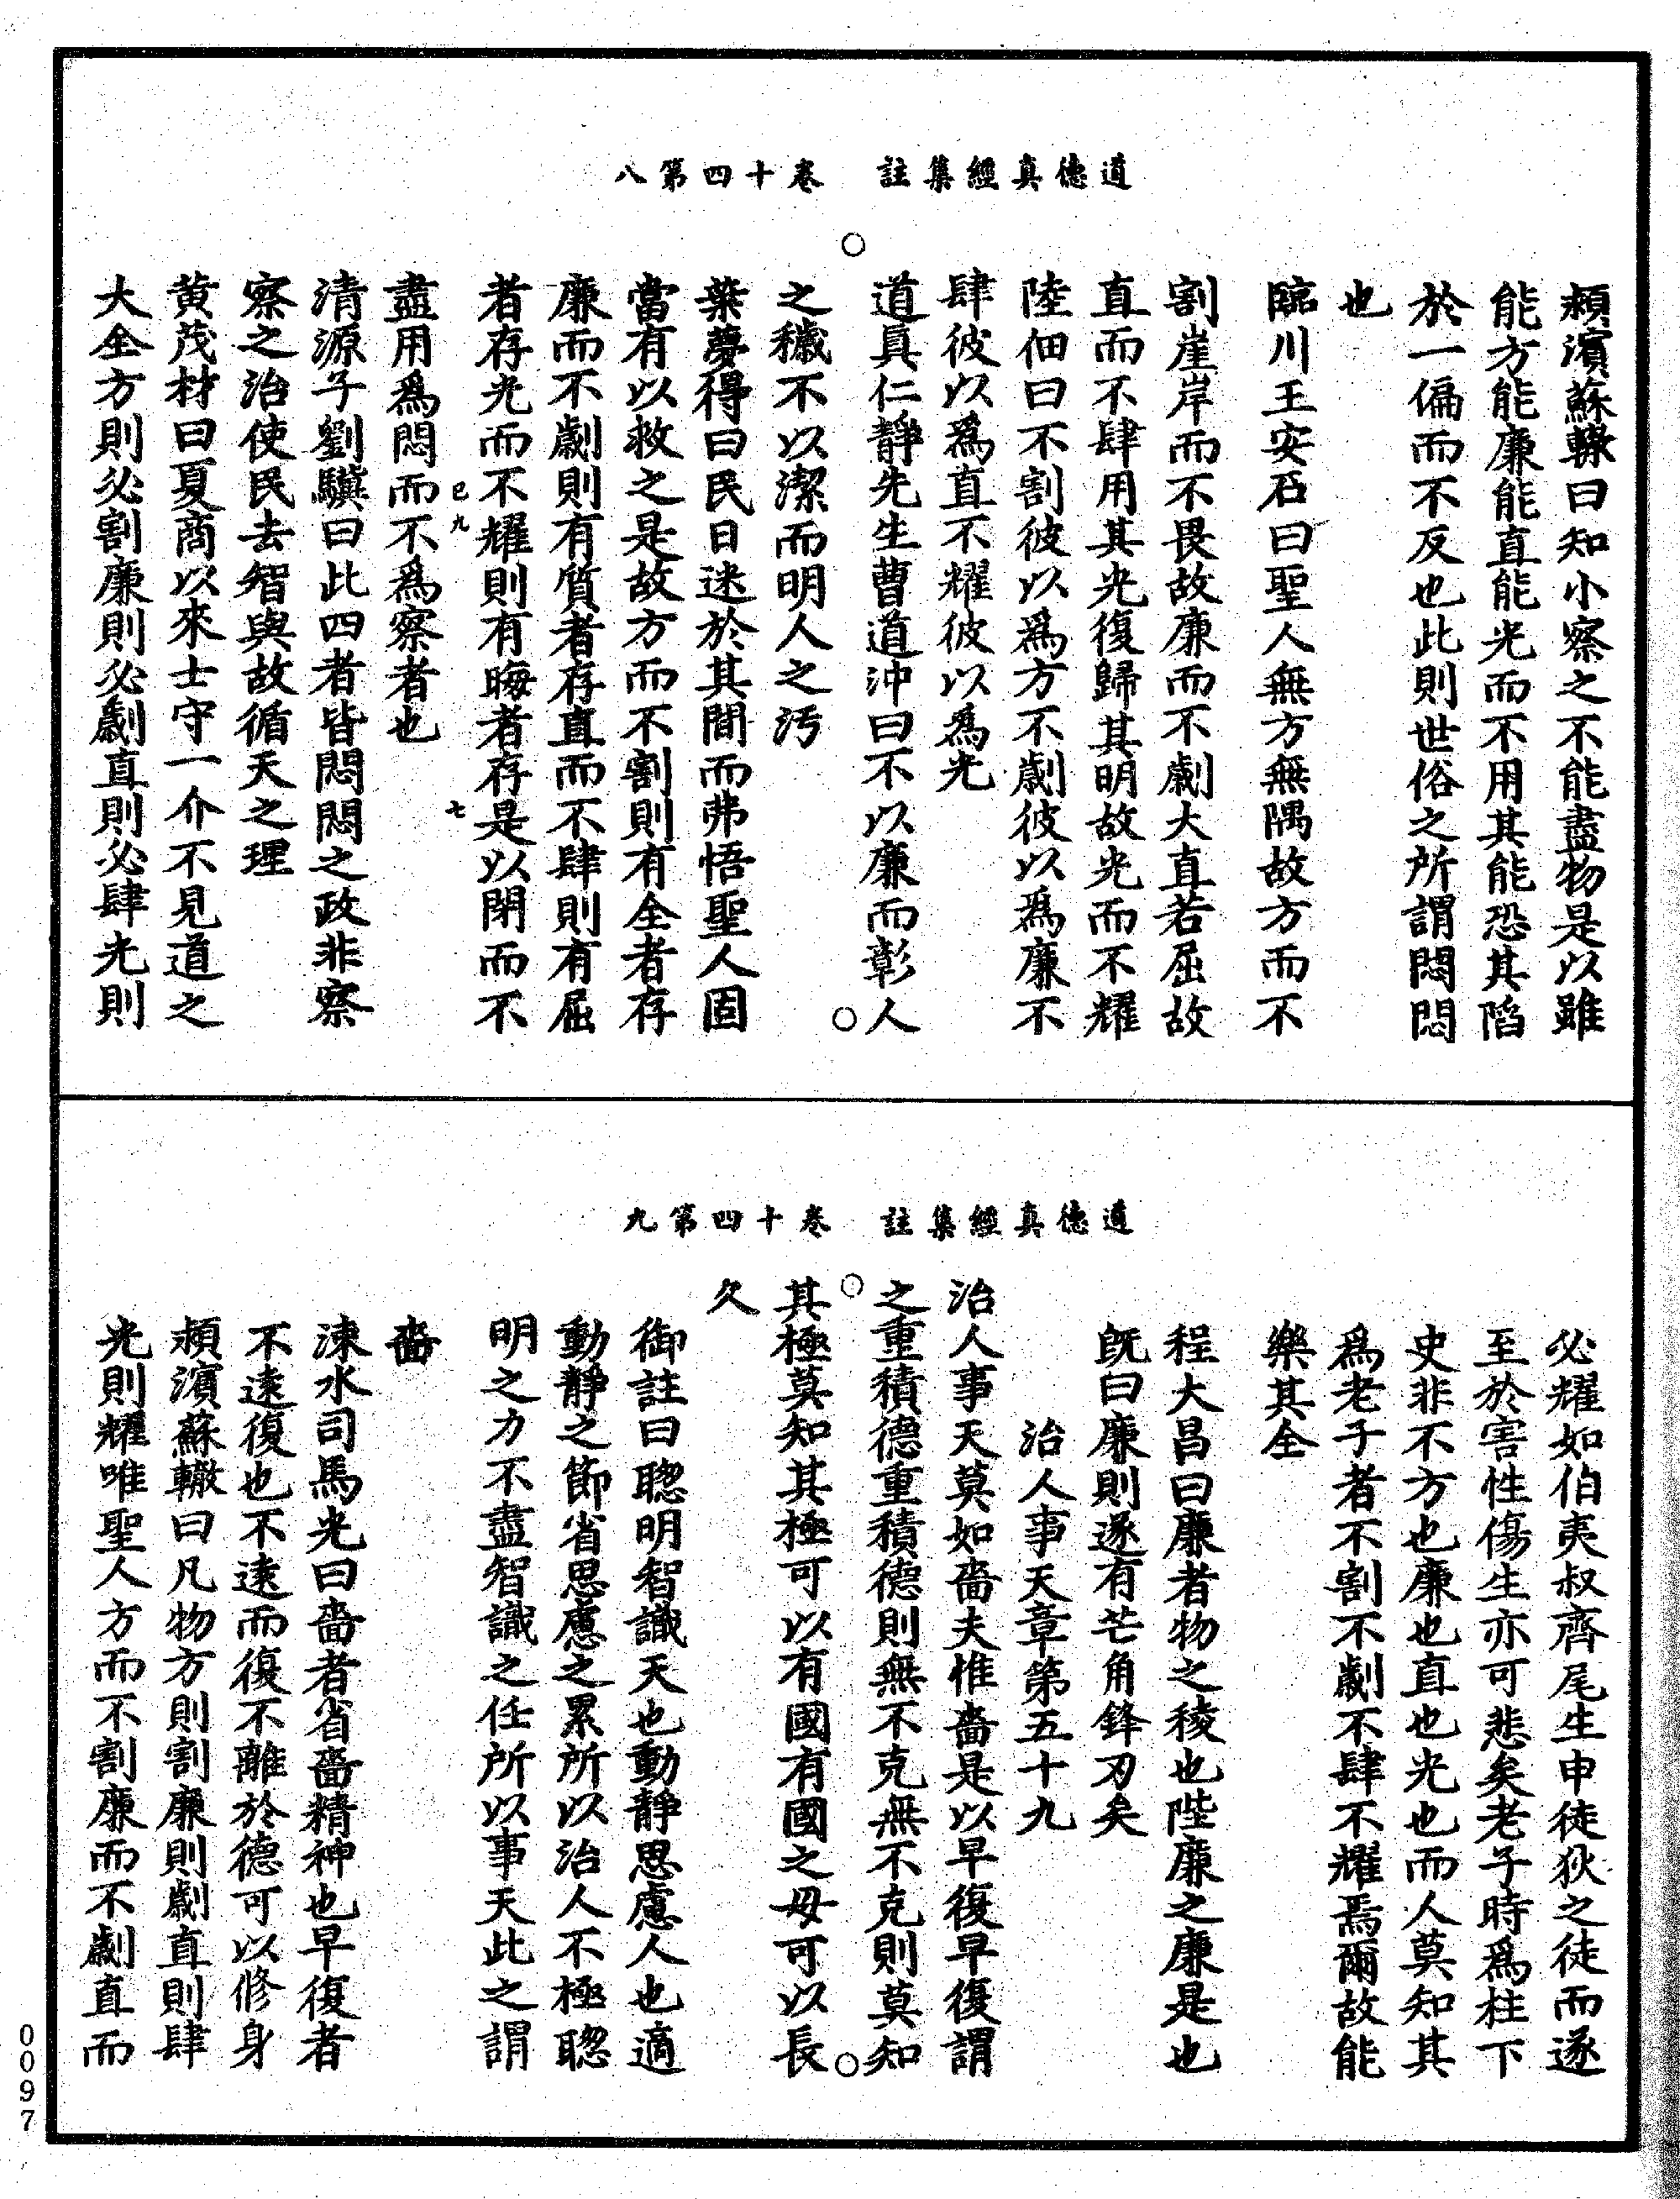 道德真經集註　卷十四第八
頴濵蘇轍曰知小察之不能盡物是以雖
能方能廉能直能光而不用其能恐其陷
於一偏而不反也此則世俗之所謂悶悶
也
臨川王安石曰聖人無方無隅故方而不
割崖岸而不畏故廉而不劌大直若屈故
直而不肆用其光復歸其明故光而不耀
陸佃曰不割彼以爲方不劌彼以爲廉不
肆彼以爲直不耀彼以爲光
道真仁靜先生曹道沖曰不以廉而彰人
之穢不以潔而明人之污
葉夢得曰民日迷於其間而弗悟聖人固
當有以救之是故方而不割則有全者存
廉而不劌則有質者存直而不肆則有屈
者存光而不耀則有晦者存是以閉而不
已九
七
盡用爲悶而不爲察者也
清源子劉驥曰此四者皆悶悶之政非察
察之治使民去智與故循天之理
黄茂材曰夏商以來士守一介不見道之
大全方則必割廉則必劌直則必肆光則
道德真經集註　卷十四第九
必耀如伯夷叔齊尾生申徒狄之徒而遂
至於害性傷生亦可悲矣老子時爲柱下
史非不方也廉也直也光也而人莫知其
爲老子者不割不劌不肆不耀焉爾故能
樂其全
程大昌曰廉者物之稜也陛廉之廉是也
旣曰廉則遂有芒角鋒刃矣
治人事天章第五十九
治人事天莫如嗇夫惟嗇是以早復早復謂
之重積德重積德則無不克無不克則莫知
其極莫知其極可以有國有國之母可以長
久
御註曰聰明智識天也動靜思慮人也適
動靜之節省思慮之累所以治人不極聰
明之力不盡智識之任所以事天此之謂
嗇
涑水司馬光曰嗇者省嗇精神也早復者
不遠復也不遠而復不離於德可以修身
頴濵蘇轍曰凡物方則割廉則劌直則肆
光則耀唯聖人方而不割廉而不劌直而
0097